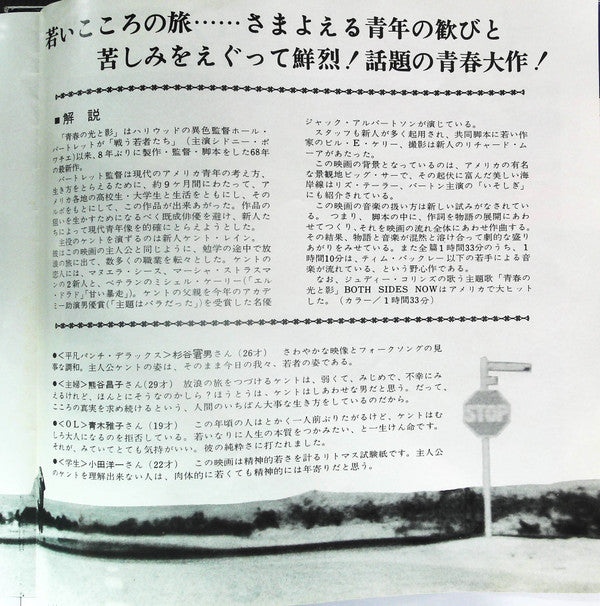 若いこころの旅……さまよえる青年の歓びと
苦しみをえぐって鮮烈！話題の青春大作！
■解 説
「青春の光と影」はハリウッドの異色監督ホール・
バートレットが「戦う若者たち」（主演シドニー・ポ
ワチエ）以来、8年ぶりに製作・監督・脚本をした68年
の最新作。
バートレット監督は現代のアメリカ青年の考え方、
生き方をとらえるために、約9ケ月間にわたって、ア
メリカ各地の高校生・大学生と生活をともにし、その
ルポをもとにして、この作品が出来あがった。作品の
狙いを生かすためになるべく既成俳優を避け、新人た
ちによって現代青年像を的確にとらえようとした。
主役のケントを演ずるのは新人ケント・レイン。
彼はこの映画の主人公と同じように、勉学の途中で放
浪の旅に出て、数多くの職業を転々とした。ケントの
恋人には、マヌエラ・シース、マーシャ・ストラスマ
ンの2新人と、ベテランのミシェル・ケーリー（「エル
・ドラド」「甘い暴走」）。ケントの父親を今年のアカデ
ミー助演男優賞（「主題はバラだった」）を受賞した名優
ジャック・アルバートソンが演じている。
スタッフも新人が多く起用され、共同脚本に若い作
家のビル・E・ケリー、撮影は新人のリチャード・ム
ーアがあたった。
この映画の背景となっているのは、アメリカの有名
な景観地ビッグ・サーで、その起伏に富んだ美しい海
岸線はリズ・テーラー、バートン主演の「いそしぎ」
にも紹介されている。
この映画の音楽の扱い方は新しい試みがなされてい
る。つまり、脚本の中に、作詞を物語の展開にあわ
せてつくり、それを映画の流れ全体にあわせ作曲する。
その結果、物語と音楽が混然と溶け合って劇的な盛り
あがりをみせている。また全篇1時間33分のうち、1
時間10分は、ティム・バックレー以下の若手による音
楽が流れている、という野心作である。
なお、ジュディー・コリンズの歌う主題歌「青春の
光と影」BOTH SIDES NOWはアメリカで大ヒット
した。（カラー／1時間33分）
●<平凡パンチ・デラックス>杉谷冨男さん（26才） さわやかな映像とフォークソングの見
事な調和。主人公ケントの姿は、そのまま今日の我々、若者の姿である。
●<主婦>熊谷昌子さん（29才） 放浪の旅をつづけるケントは、弱くて、みじめで、不幸にみ
えるけれど、ほんとにそうなのかしら？ほうとうは、ケントはしあわせな男だと思う。だって、
こころの真実を求め続けるという、人間のいちばん大事な生き方をしているのだから。
●<OL>青木雅子さん（19才） この年頃の人はとかく一人前ぶりたがるけど、ケントはむ
しろ大人になるのを拒否している。若いなりに人生の本質をつかみたい、と一生けん命です。
それが、みていてとても気持がいい。彼の純粋さに打たれました。
●<学生>小田洋一さん（22才） この映画は精神的若さを計るリトマス試験紙です。主人公
のケントを理解出来ない人は、肉体的に若くても精神的には年寄りだと思う。
STOP